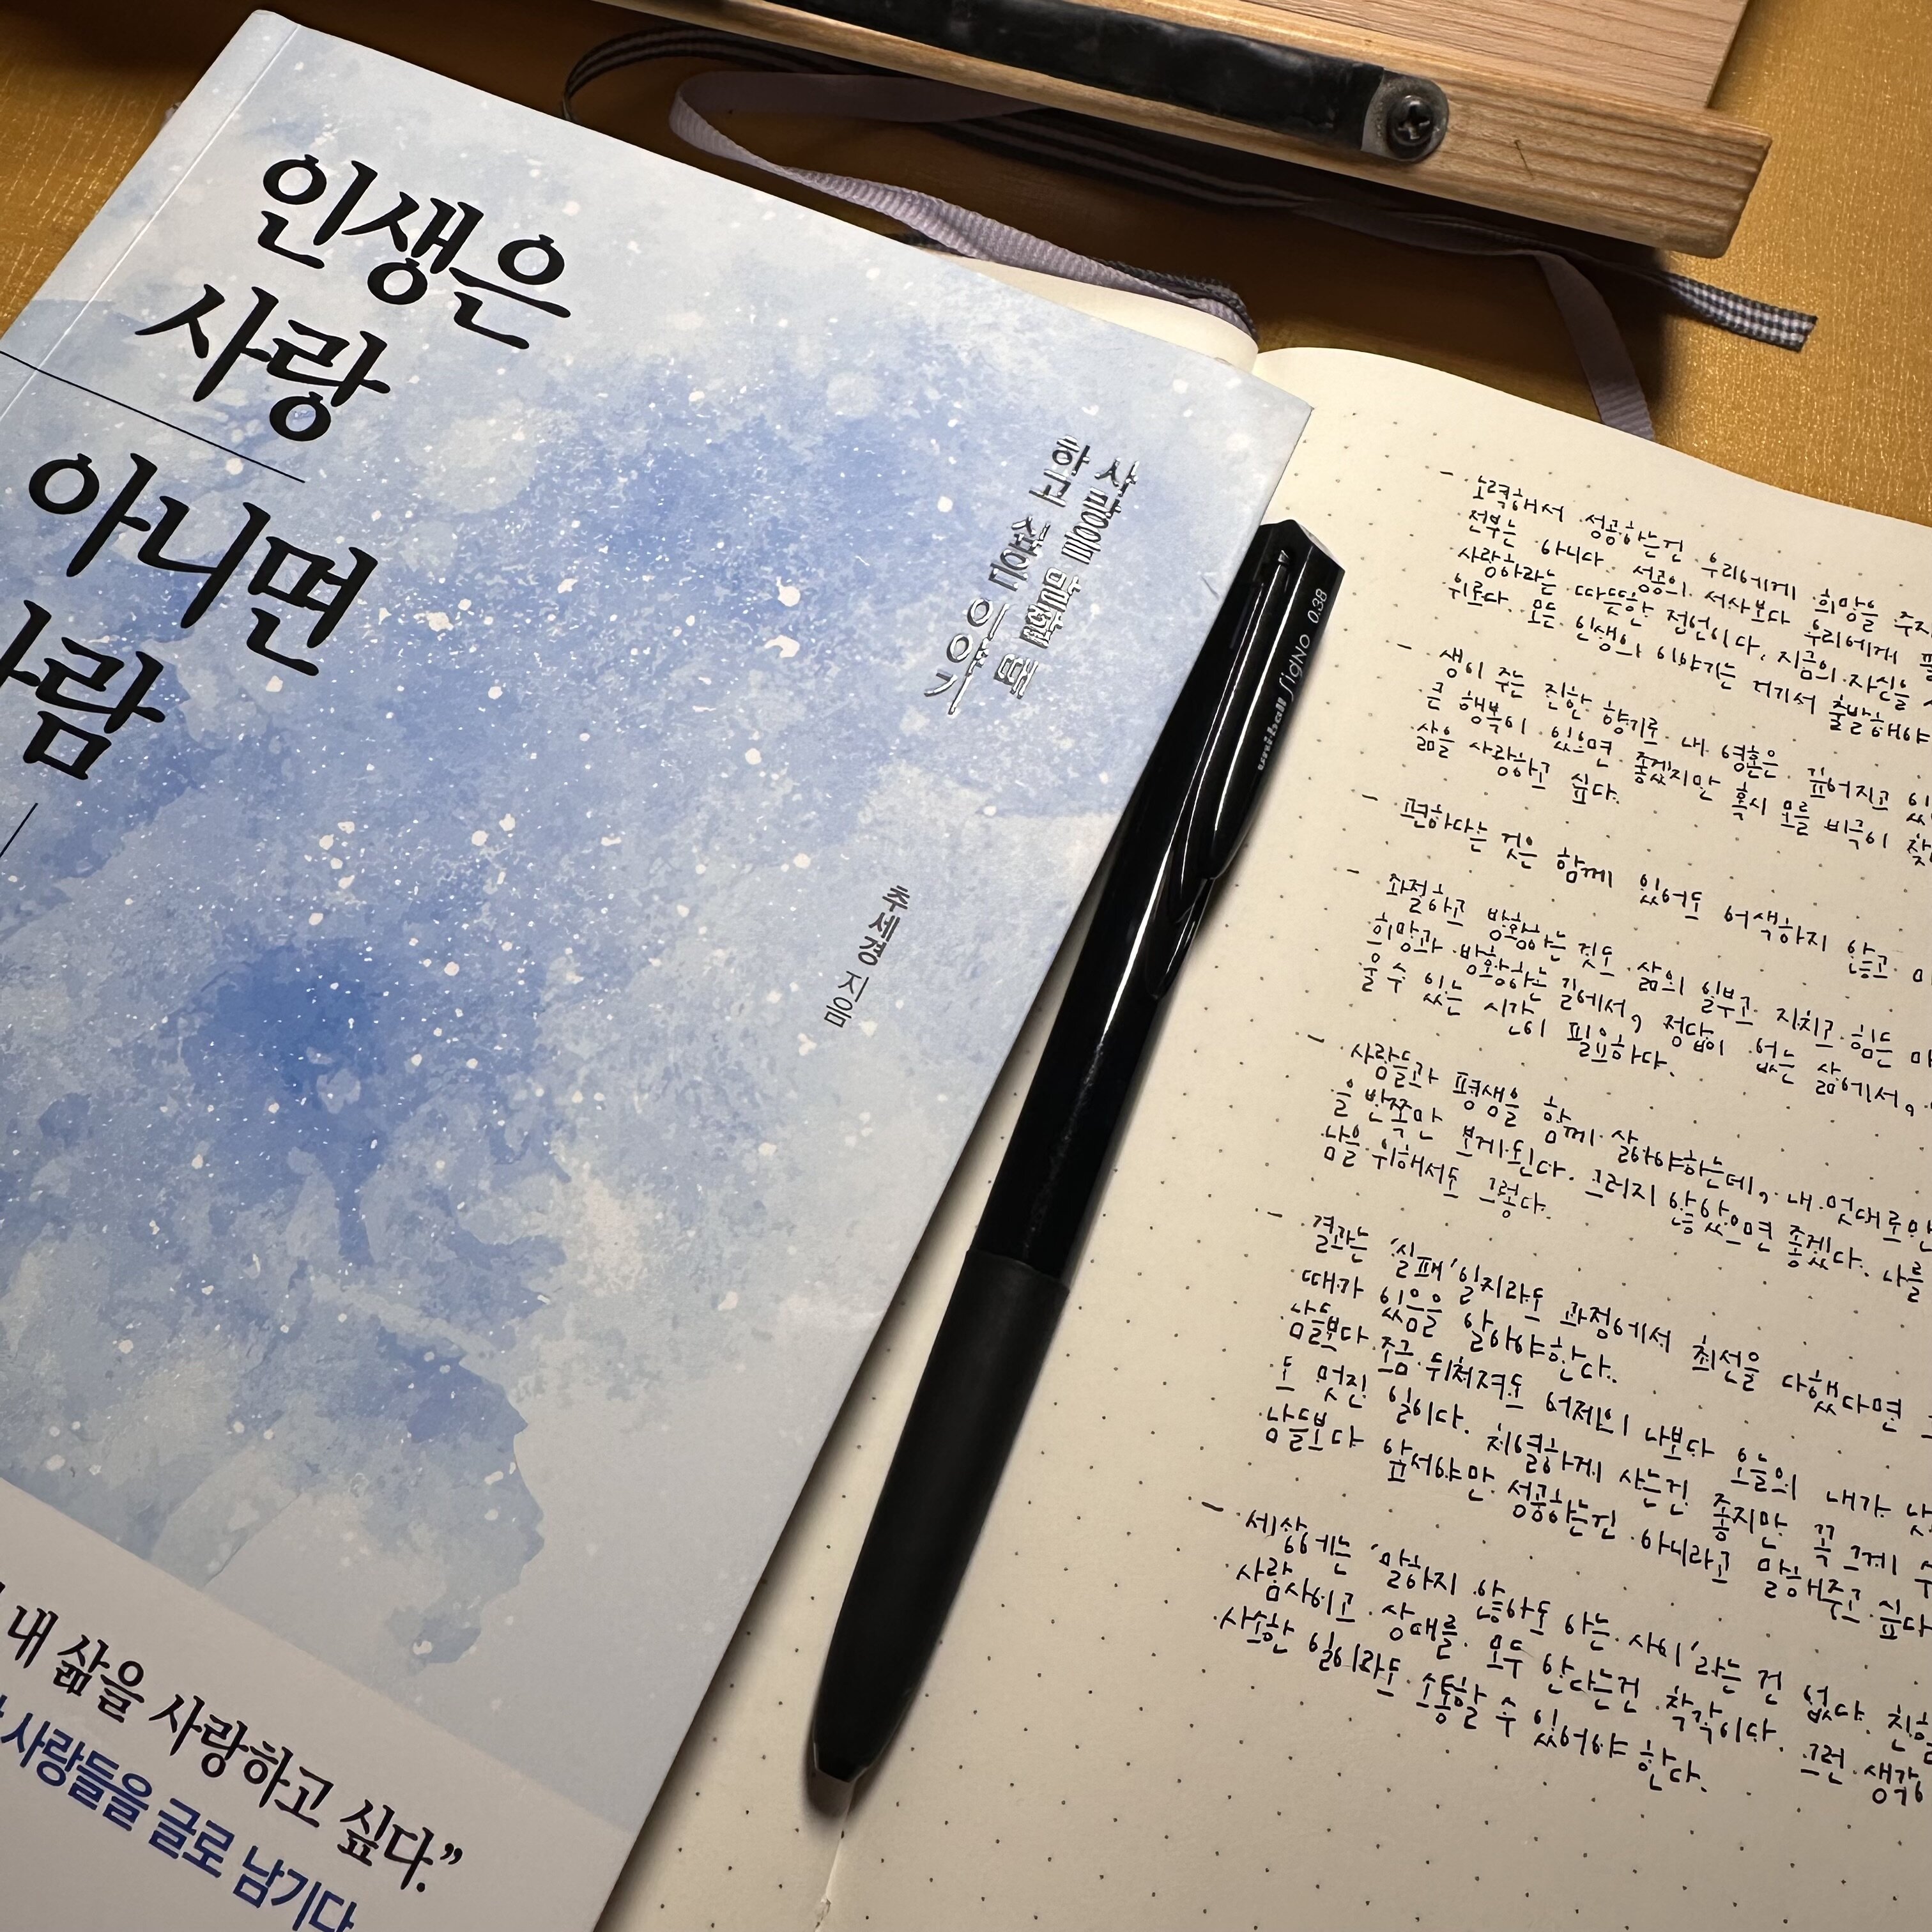 인생은
사랑
아니면
사람
사랑에 말할 때
하고 싶은 이야기
추세경 지음
내 삶을 사랑하고 싶다.”
사랑들을 글로 남기다
uni-ball SigNo 0.38
- 노력해서 성공하는건 우리에게 희망을 주지
전부는 아니다. 성공의 서사보다 우리에게
사랑하라는 따뜻한 전언이다. 지금의 자신을
위로다. 모든 인생의 이야기는 거기서 출발해야
- 생이 주는 진한 향기로 내 영혼은 깊어지고
큰 행복이 있으면 좋겠지만 혹시 모를 비극이
삶을 사랑하고 싶다.
- 편하다는 것은 함께 있어도 어색하지 않고
- 좌절하고 방황하는 것도 삶의 일부고 지치고 힘든
희망과 방황하는 길에서, 정답이 없는 삶에서,
울 수 있는 시간이 필요하다.
- 사람들과 평생을 함께 살아야하는데, 내 멋대로만
을 반쪽만 보게된다. 그러지 않았으면 좋겠다. 나를
남을 위해서도 그렇다.
- 결과는 '실패'일지라도 과정에서 최선을 다했다면
때가 있음을 알아야한다.
남들보다 조금 뒤쳐져도 어제의 나보다 오늘의 내가
도 멋진 일이다. 치열하게 사는건 좋지만 꼭 그게
남들보다 앞서야만 성공하는건 아니라고 말해주고 싶다
- 세상에는 '말하지 않아도 아는 사이'라는 건 없다.
사람사이고 상대를 모두 안다는건 착각이다. 그런
사소한 일이라도 소통할 수 있어야 한다.